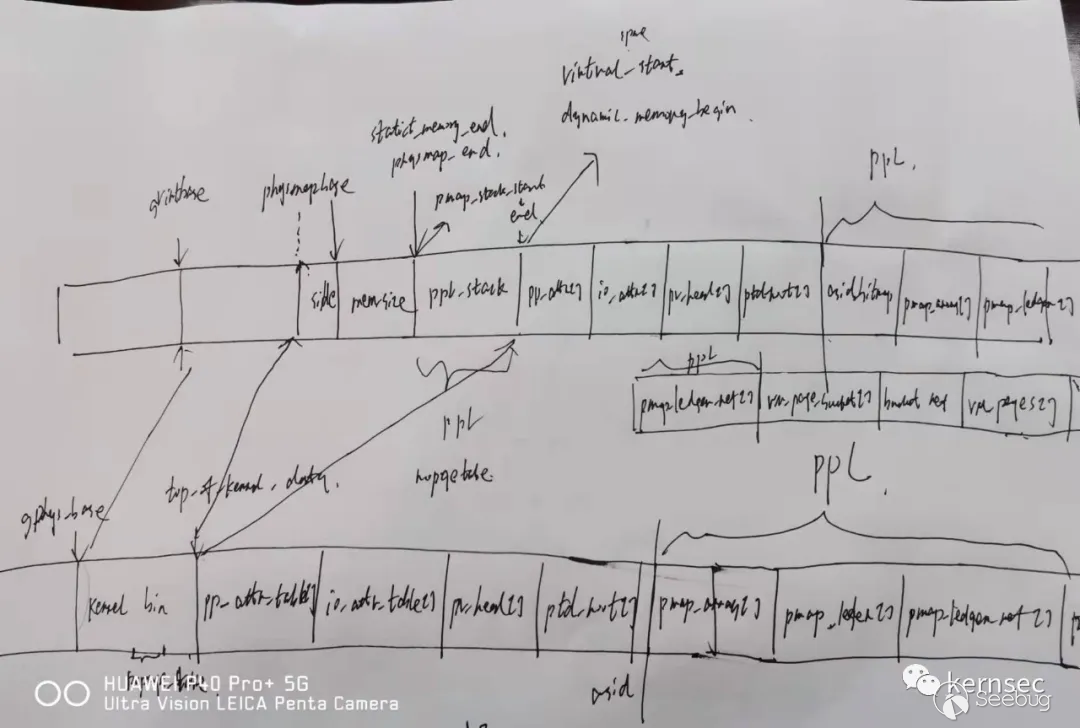 virtual_start
dynamic_memory_begin
static_memory_end
physmap_end
ppL
physmapbase
pmap_stack_start
end
slide
memsize
ppl_stack
pp_attr[]
io_attr[]
pv_head[]
ptd_root[]
asid bitmap
pmap_array[]
pmap_ledger[]
ppL
pmap_ledger_ref[]
vm_page_bucket[]
vm_pages[]
ppL
top_of_kernel_data
ppL
gphys_base
kernel bin
pp_attr_table[]
io_attr_table[]
pv_head[]
ptd_root[]
pmap_array[]
pmap_ledger[]
pmap_ledger_ref[]
asid
HUAWEI P40 Pro+ 5G
Ultra Vision LEICA Penta Camera
kernsec
Seebug